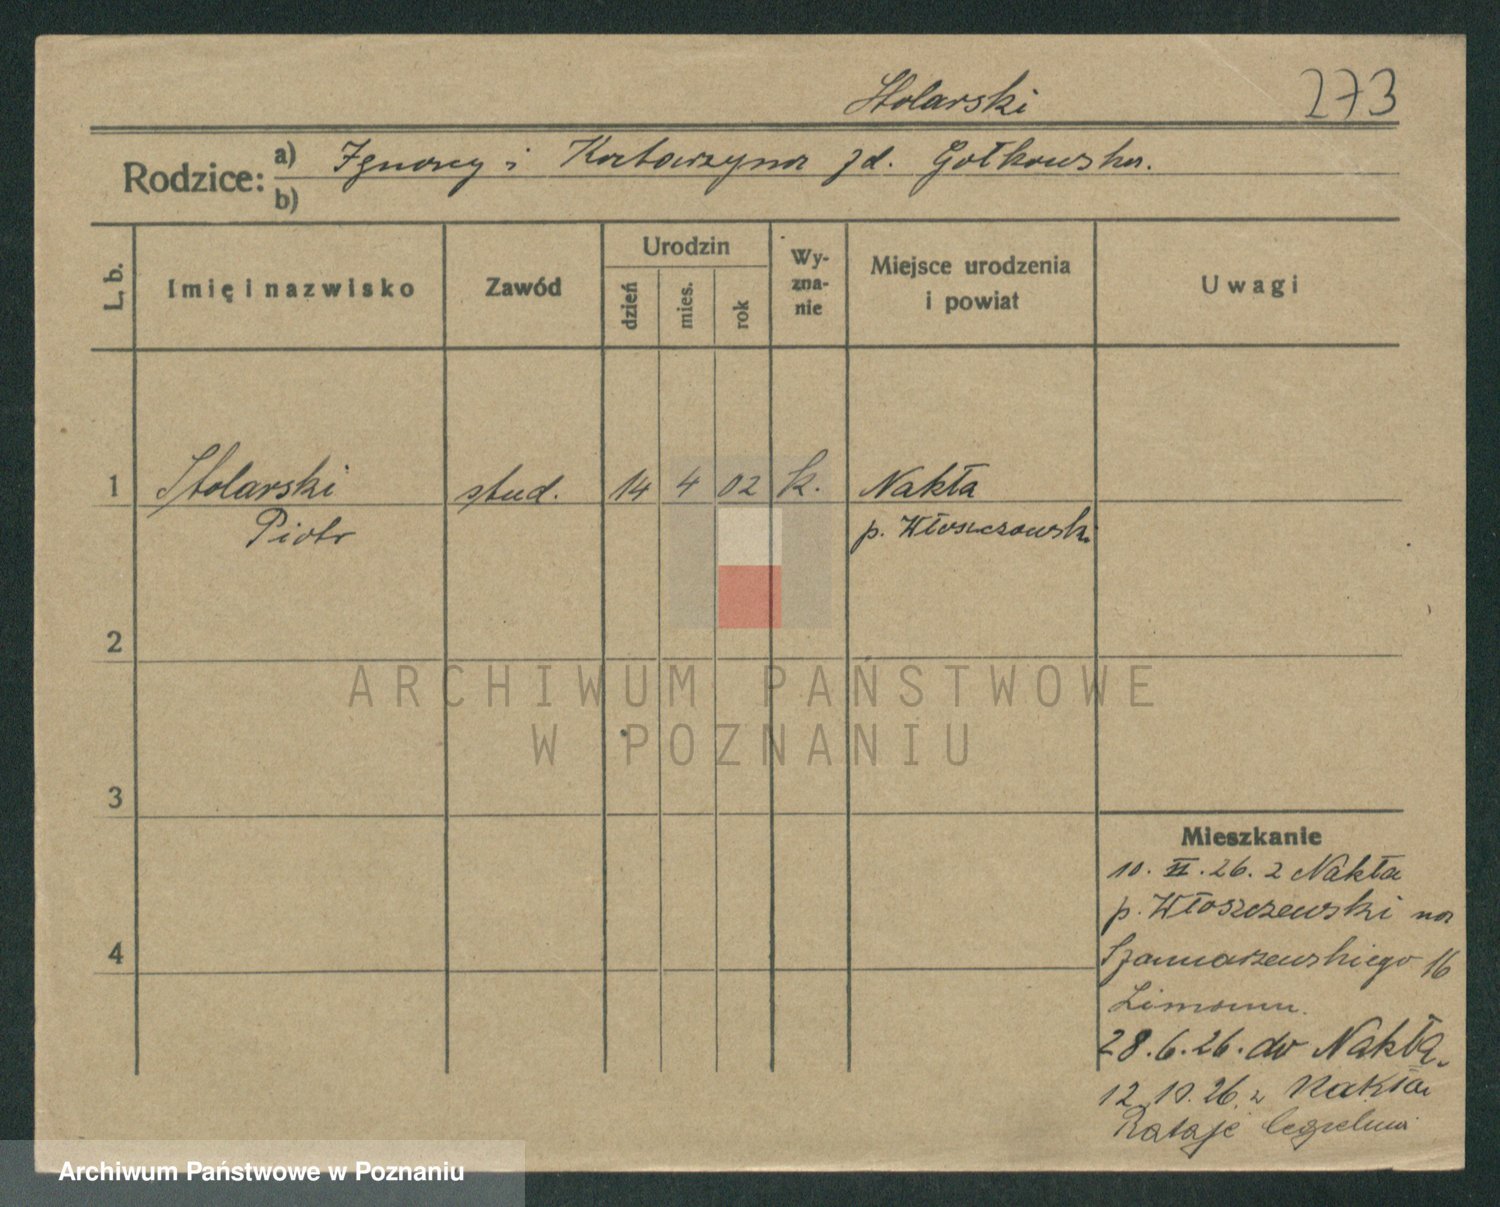 Stolarski 273
Rodzice: a) Ignacy i Katarzyna zd. Gołkowska.
b)
L. b. Imię i nazwisko Zawód Urodzin dzień mies. rok Wyznanie Miejsce urodzenia i powiat Uwagi
1 Stolarski stud. 14 4 02 k. Nakła
Piotr p. Włoszczowski
2
ARCHIWUM PAŃSTWOWE
W POZNANIU
3
Mieszkanie
10. XI. 26. z Nakła
p. Włoszczewski na
4
Szamarzewskiego 16
28. 6. 26. do Nakła.
12 10. 26. z Nakła
Rataje
Archiwum Państwowe w Poznaniu